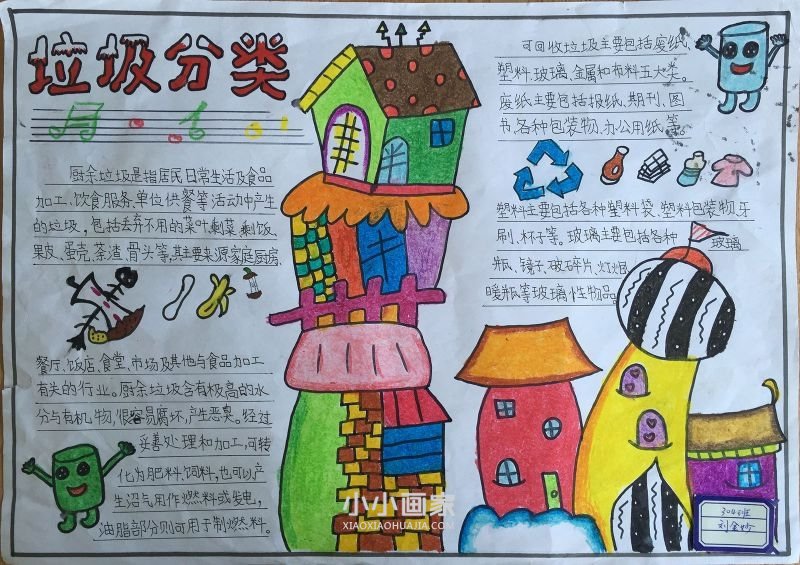 垃圾分类
厨余垃圾是指居民日常生活及食品
加工、饮食服务、单位供餐等活动中产生
的垃圾,包括丢弃不用的菜叶、剩菜、剩饭、
果皮、蛋壳、茶渣、骨头等,其主要来源家庭厨房、
餐厅、饭店、食堂、市场及其他与食品加工
有关的行业。厨余垃圾含有极高的水
分与有机物,很容易腐坏,产生恶臭。经过
妥善处理和加工,可转
化为肥料、饲料,也可以产
生沼气用作燃料或发电,
油脂部分则可用于制燃料。
可回收垃圾主要包括废纸、
塑料、玻璃、金属和布料五大类。
废纸主要包括报纸、期刊、图
书、各种包装物、办公用纸等。
塑料主要包括各种塑料袋、塑料包装物、牙
刷、杯子等。玻璃主要包括各种玻璃
瓶、镜子、破碎片、灯焜、
暖瓶等玻璃性物品。
304班
刘金妙
小小画家
XIAOXIAOHUAJIA.COM